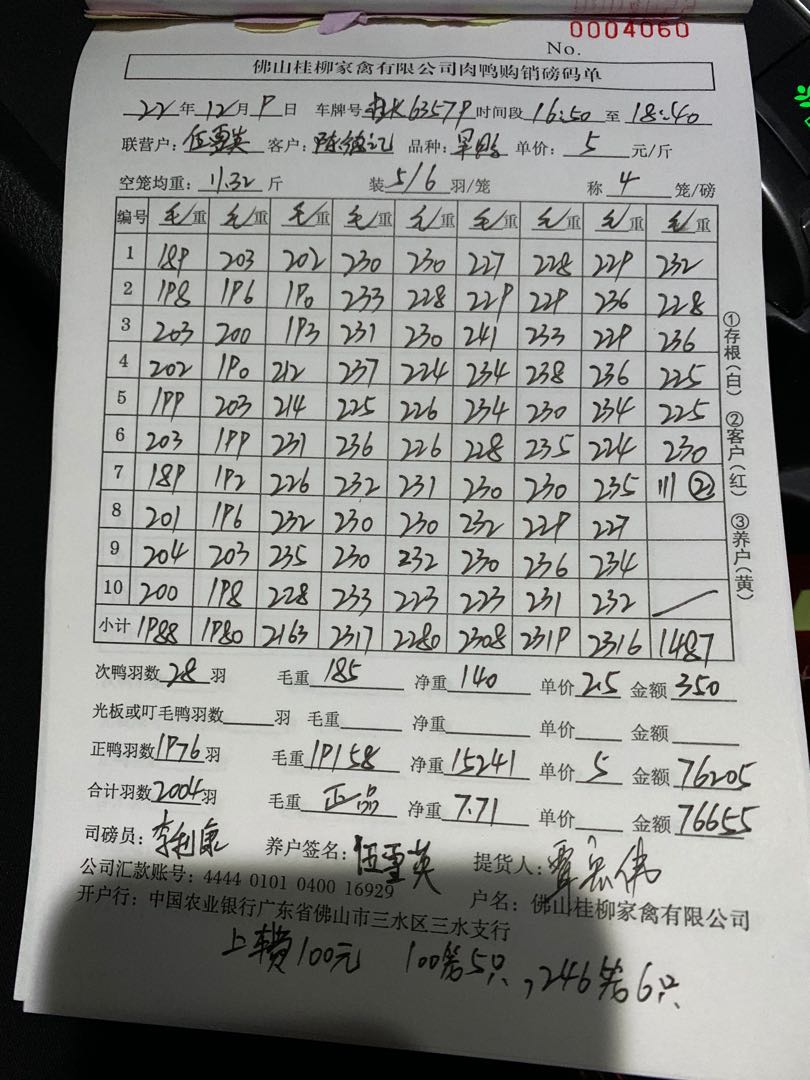 No. 0004060
佛山桂柳家禽有限公司肉鸭购销磅码单
22年12月9日 车牌号 63579 时间段 16:50 至 18:40
联营户: 伍雪英 客户: 品种: 单价: 5 元/斤
空笼均重: 11.32 斤 装 5/6 羽/笼 称 4 笼/磅
编号 毛重 毛重 毛重 毛重 毛重 毛重 毛重 毛重 毛重
1 189 203 202 230 230 227 228 229 232
2 198 196 190 233 228 229 229 236 228
3 203 200 193 231 230 241 233 229 236
4 202 190 212 237 224 234 238 236 225
5 199 203 214 225 226 234 230 234 225
6 203 199 231 236 226 228 235 224 230
7 189 192 226 232 231 230 230 235 111 ②
8 201 196 232 230 230 232 229 227
9 204 203 235 230 232 230 236 234
10 200 198 228 233 223 223 231 232
小计 1988 1980 2163 2317 2280 2308 2319 2316 1487
①存根(白) ②客户(红) ③养户(黄)
次鸭羽数 28 羽 毛重 185 净重 140 单价 2.5 金额 350
光板或叮毛鸭羽数 羽 毛重 净重 单价 金额
正鸭羽数 1976 羽 毛重 19158 净重 15241 单价 5 金额 76205
合计羽数 2004 羽 毛重 正品 净重 7.71 单价 金额 76655
司磅员: 李利康 养户签名: 伍雪英 提货人:
公司汇款账号: 4444 0101 0400 16929 户名: 佛山桂柳家禽有限公司
开户行: 中国农业银行广东省佛山市三水区三水支行
上车费100元 100笼5只, 246笼6只